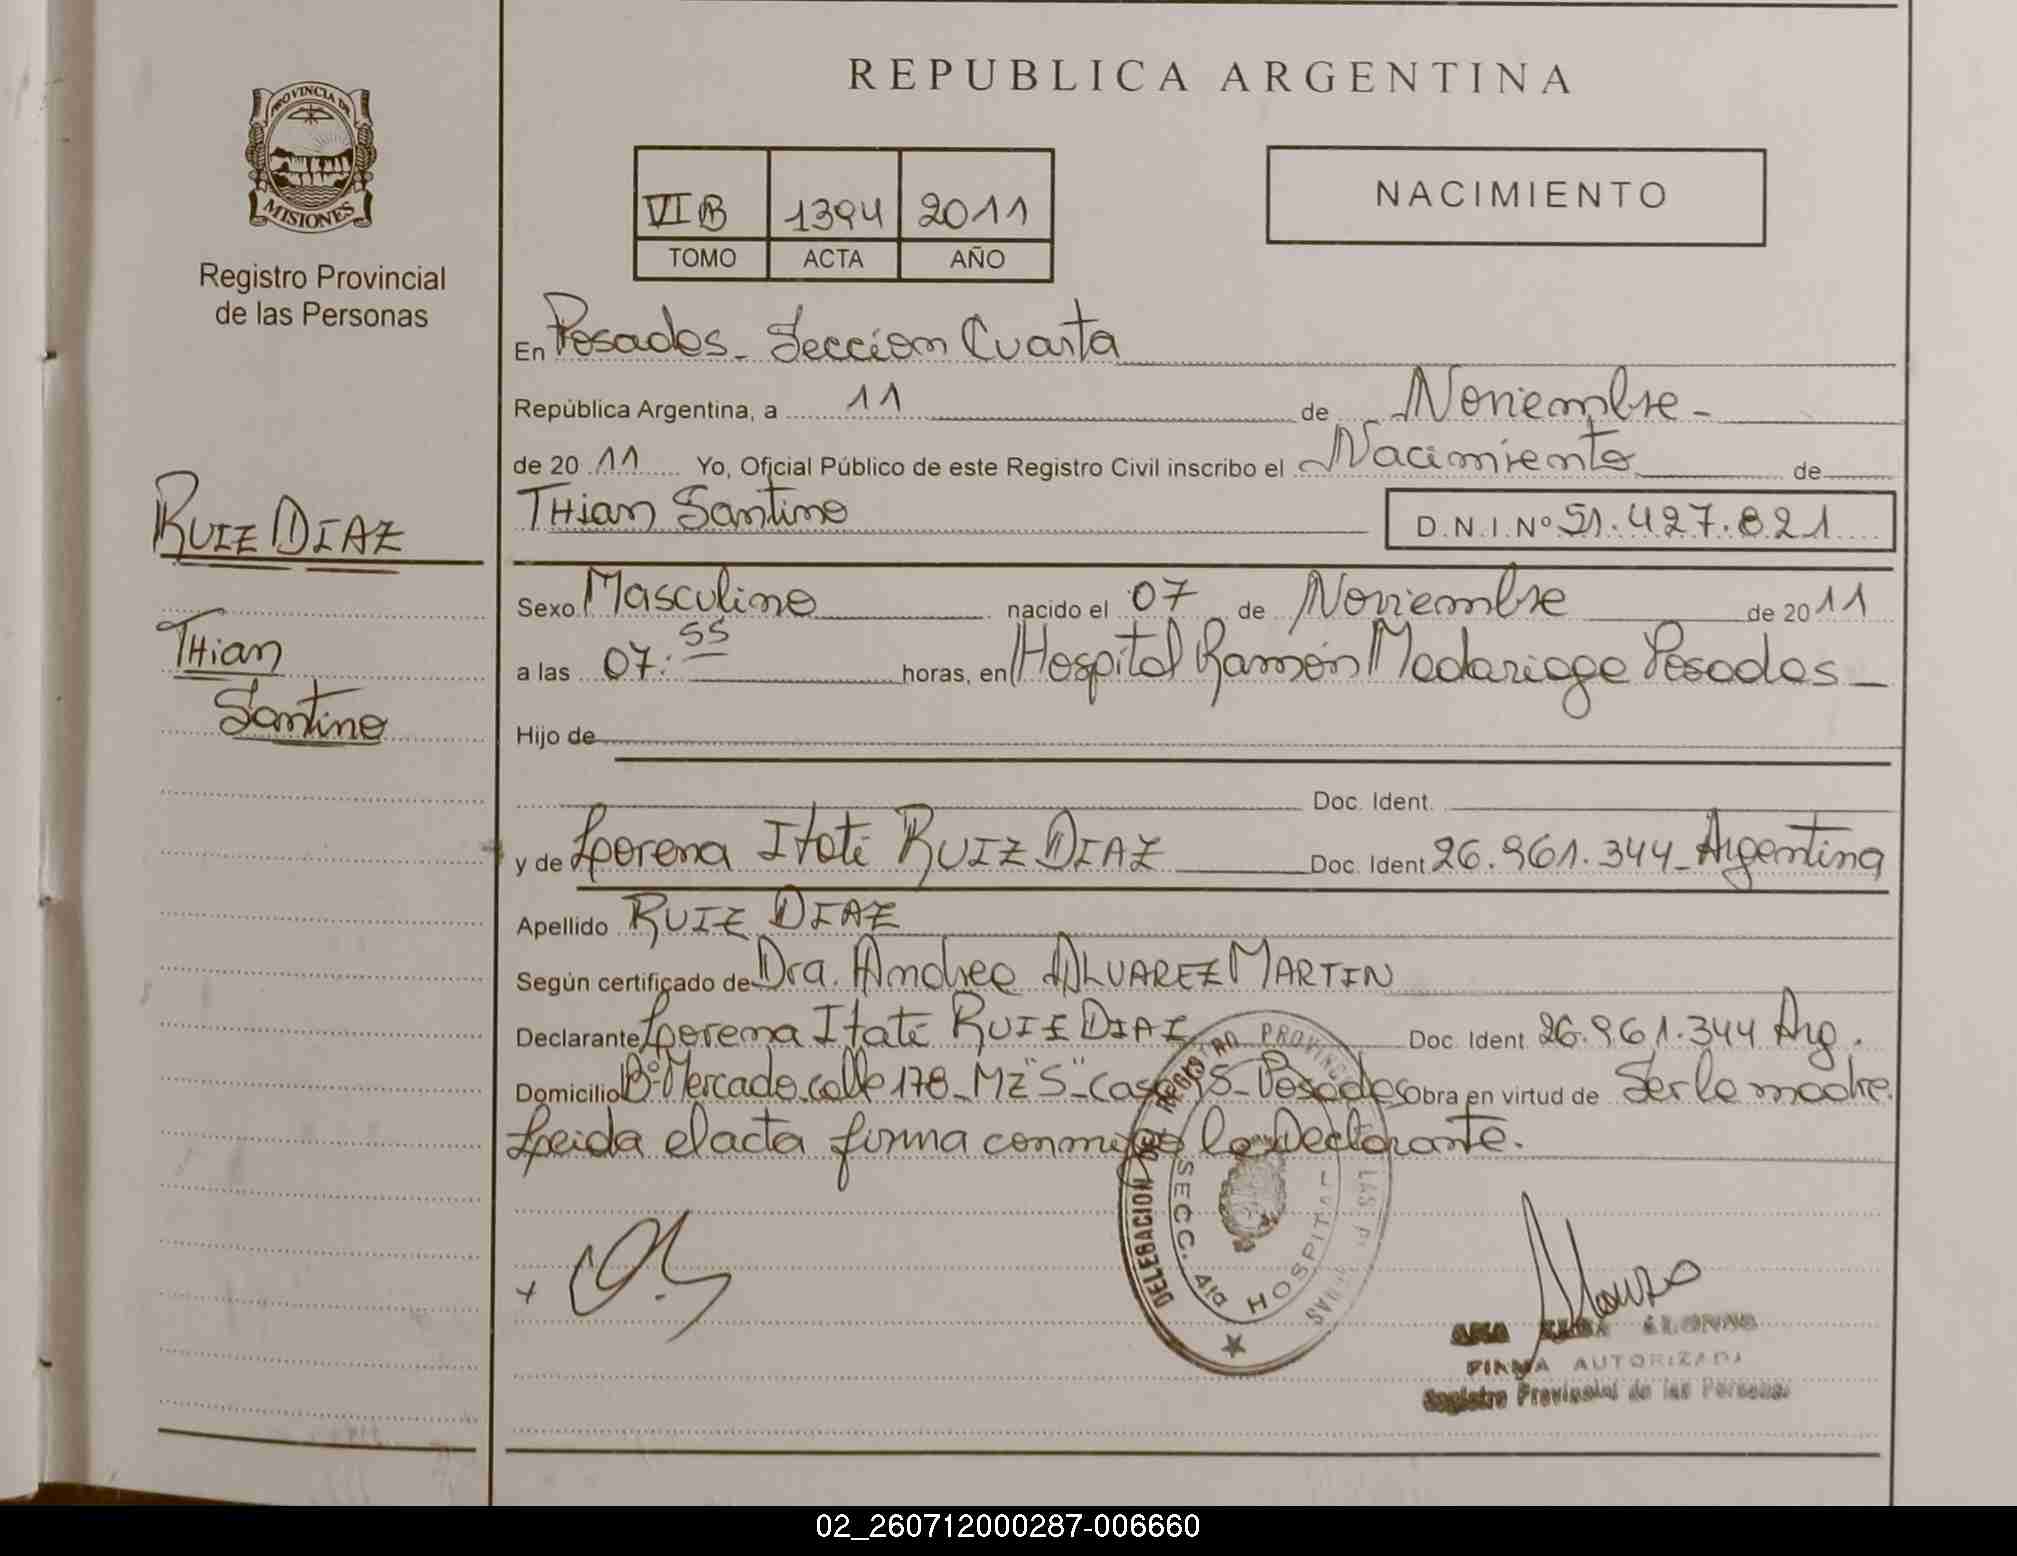 REPUBLICA ARGENTINA
PROVINCIA DE
MISIONES
Registro Provincial
de las Personas
VI B 1394 2011
TOMO ACTA AÑO
NACIMIENTO
En Posadas - Seccion Cuarta
República Argentina, a 11 de Noviembre -
de 20 11 Yo, Oficial Público de este Registro Civil inscribo el Nacimiento de
THian Santino D.N.I.Nº 51.427.821
RUIZ DIAZ
THian
Santino
Sexo Masculino nacido el 07 de Noviembre de 20 11
a las 07:55 horas, en Hospital Ramón Madariaga Posadas -
Hijo de
Doc. Ident.
y de Lorena Itati RUIZ DIAZ Doc. Ident 26.961.344 - Argentina
Apellido RUIZ DIAZ
Según certificado de Dra. Andrea ALVAREZ MARTIN
Declarante Lorena Itati RUIZ DIAZ Doc. Ident 26.961.344 Arg.
Domicilio Bº Mercado calle 178 - Mz "S" - Casa - Posadas Obra en virtud de Ser la madre.
Leida el acta firma conmigo la Declarante.
DELEGACION DEL REGISTRO PROVINCIAL DE LAS PERSONAS
SECC. 4ta HOSPITAL
ANA ELSA ALONSO
FIRMA AUTORIZADA
Registro Provincial de las Personas
02_260712000287-006660